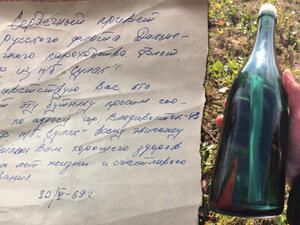 Сердечный привет
Русского флота Дальне-
чного пароходства. Флот
из п/б „Сулак"
иветствую вас кто
т эту бутылку просим соо-
по адресу гор. Владивосток-43
п/б „Сулак"
Вам хорошего здоров
их лет жизни и счастливого
вания
20/VI-69г.